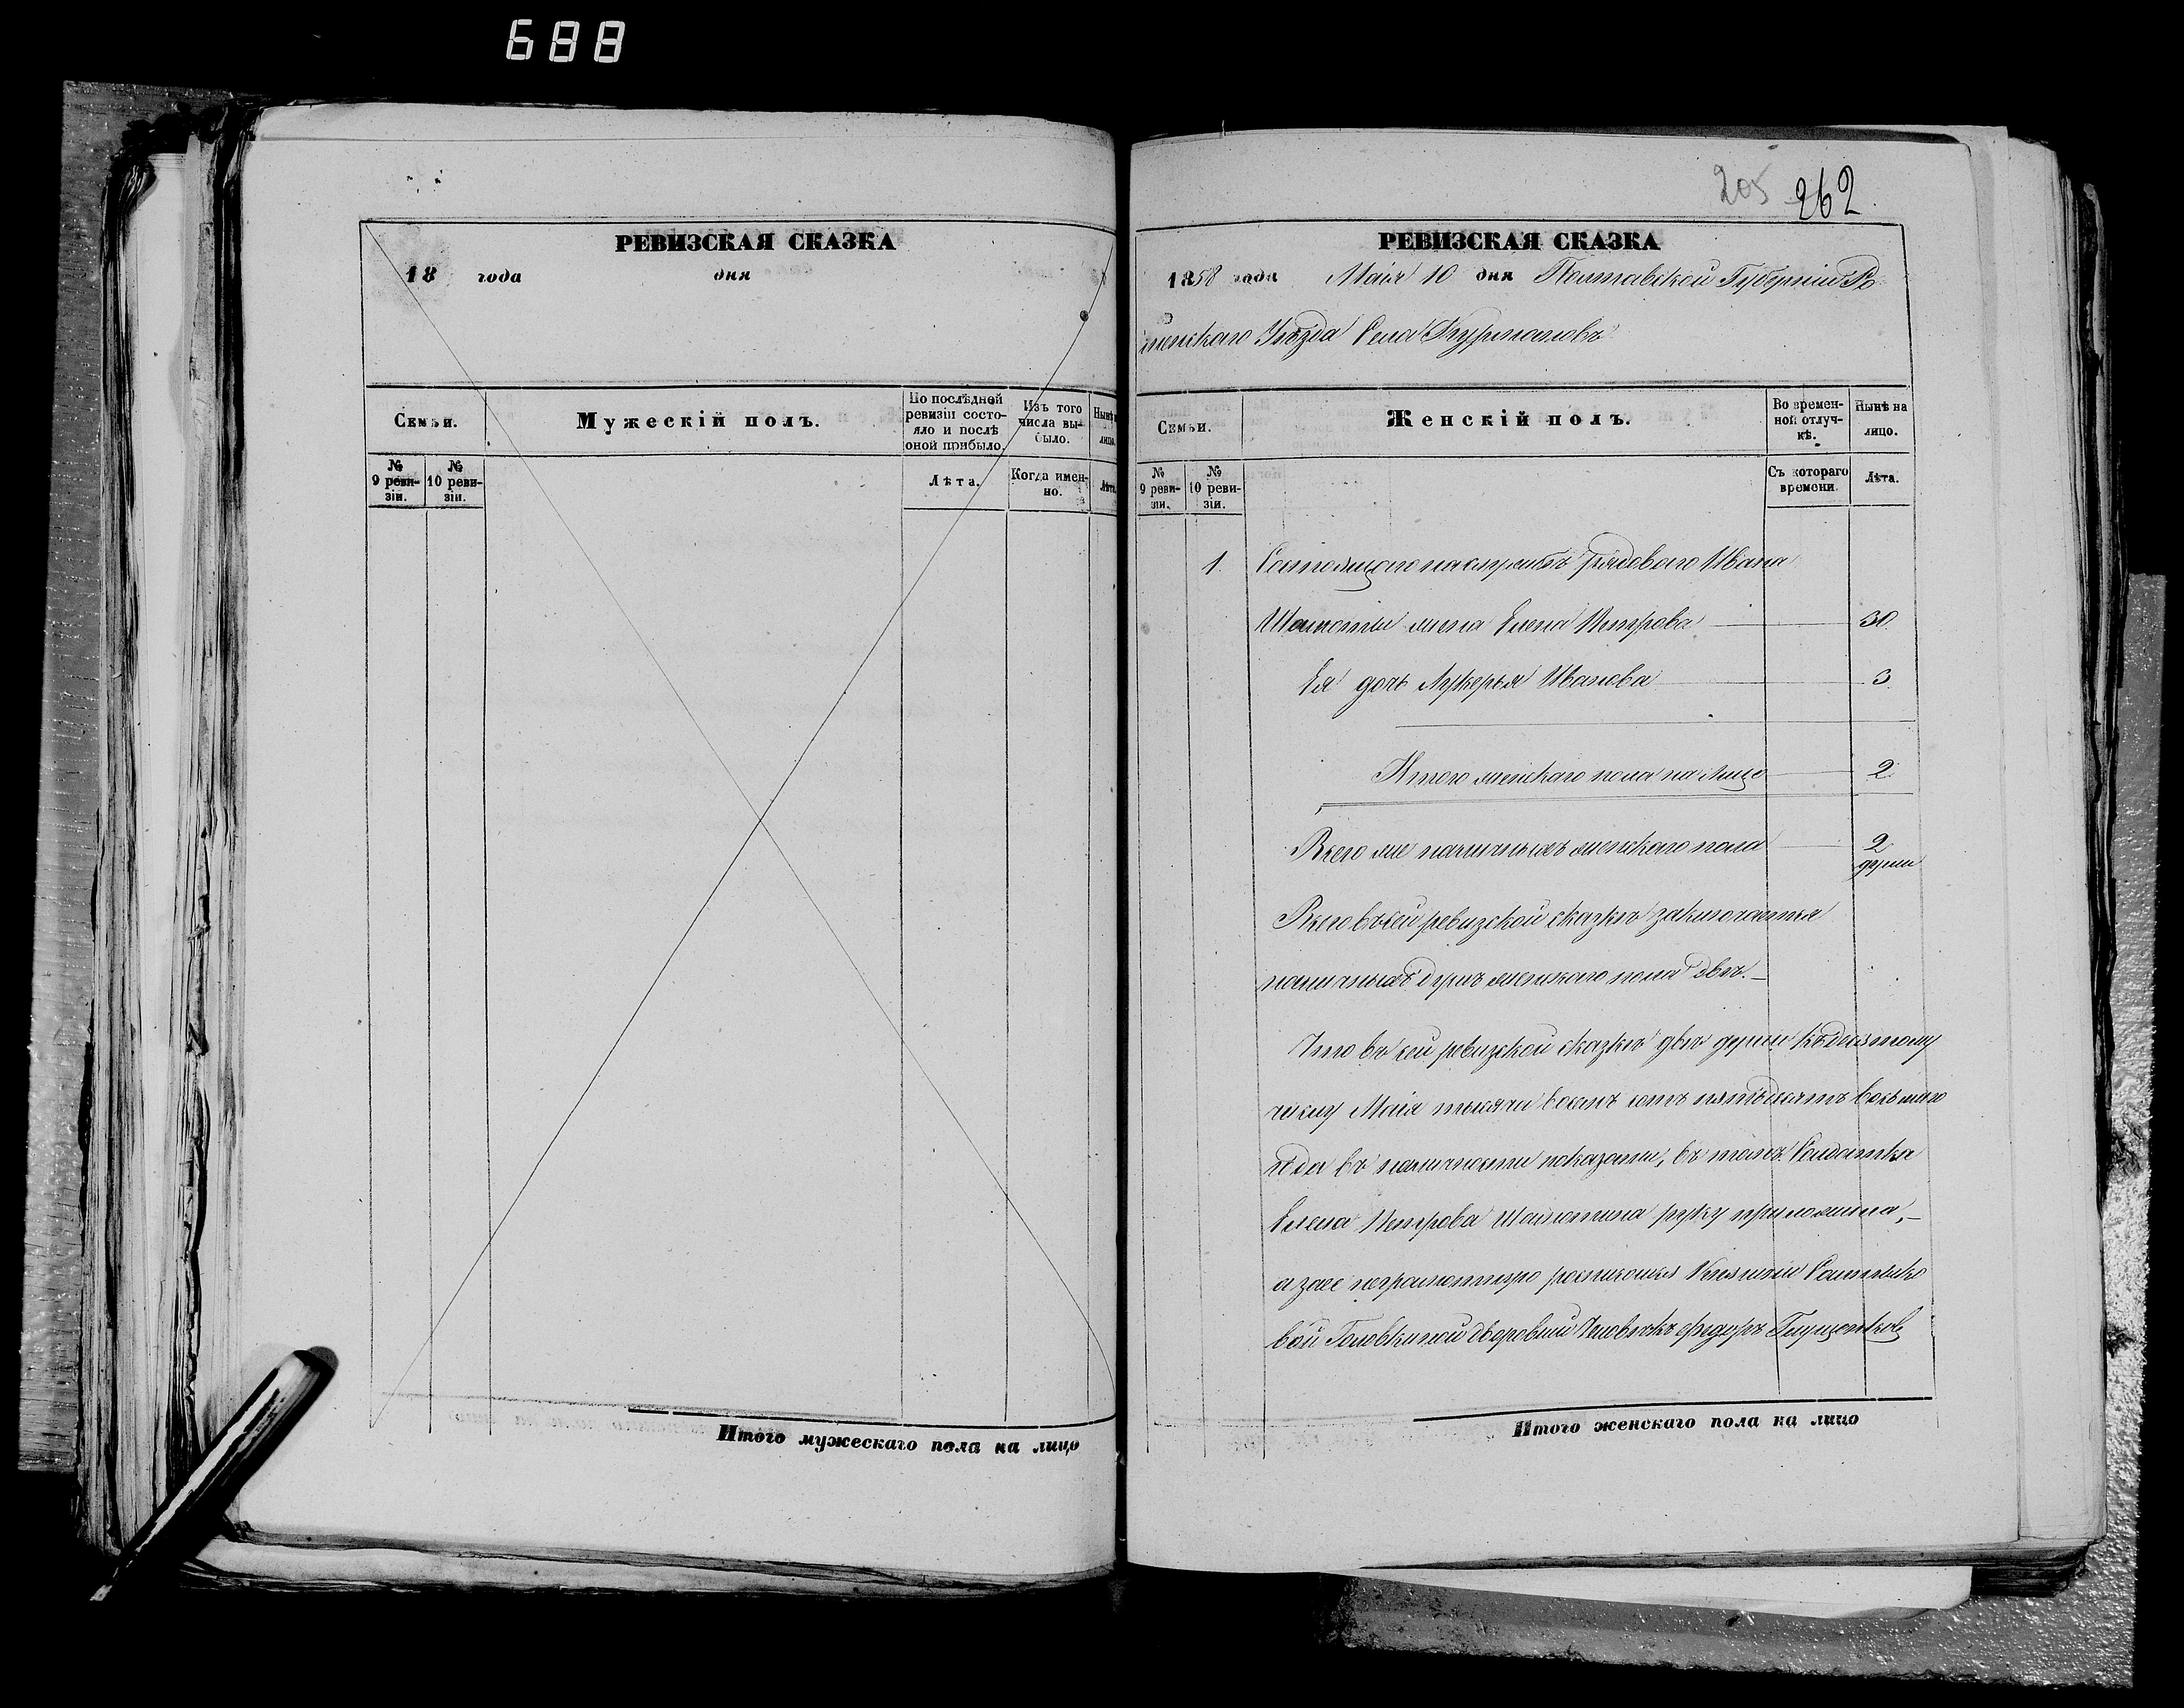 688
РЕВИЗСКАЯ СКАЗКА
18 года дня
Семьи.
Мужескій полъ.
По послѣдней ревизіи состояло и послѣ оной прибыло.
Изъ того числа выбыло.
Нынѣ лицо.
№ 9 ревизіи.
№ 10 ревизіи.
Лѣта.
Когда именно.
Лѣта.
Итого мужескаго пола на лицо
205 262
РЕВИЗСКАЯ СКАЗКА
1858 года Маія 10 дня Полтавской Губерніи Ро
менскаго Уѣзда Села
Семьи.
Женскій полъ.
Во временной отлучкѣ.
Нынѣ на лицо.
№ 9 ревизіи.
№ 10 ревизіи.
Съ котораго времени.
Лѣта.
1. Состоящаго на службѣ рядоваго Ивана
жена Елена Петрова 30
Ея дочь Лукерья Иванова 3
Итого женскаго пола на лицо 2
Всего же наличныхъ женскаго пола 2
души
Всего въ сей ревизской сказкѣ заключается
наличныхъ душъ женскаго пола двѣ.
Что въ сей ревизской сказкѣ двѣ души къ десятому
числу Маія тысяча восемь сотъ пятьдесятъ восьмаго
года въ наличности показаны, въ томъ Солдатка
Елена Петрова руку приложила,
а за ее неграмотную росписался Княгини Салтыко
вой Головкиной дворовый Человѣкъ Федоръ
Итого женскаго пола на лицо